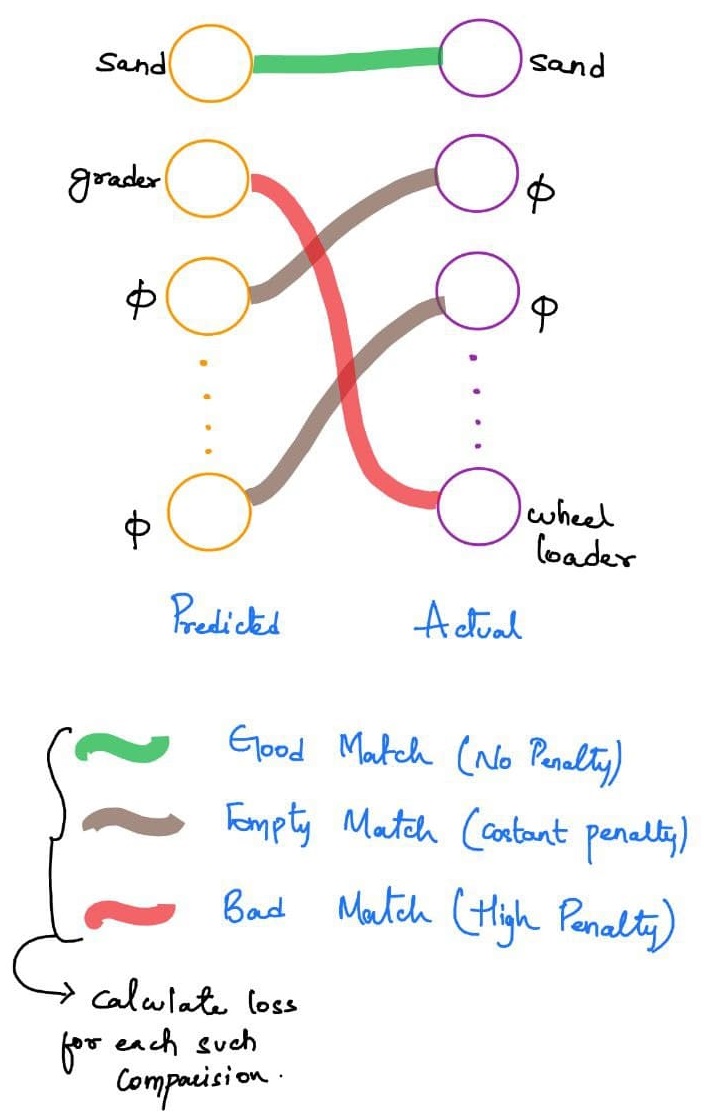 Sand
sand
grader
ϕ
ϕ
ϕ
ϕ
wheel
loader
Predicted
Actual
Good Match (No Penalty)
Empty Match (costant penalty)
Bad Match (High Penalty)
calculate loss
for each such
Comparision.